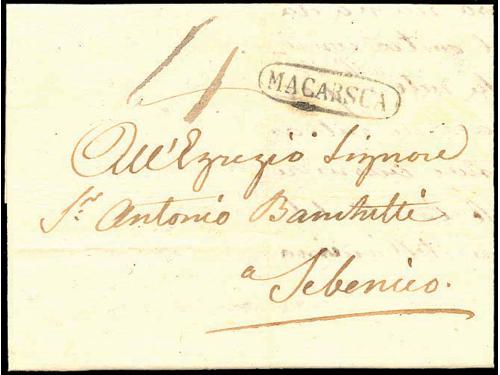 MACARSCA
All'Egregio Signore
Sr. Antonio Banchetti
a Sebenico.